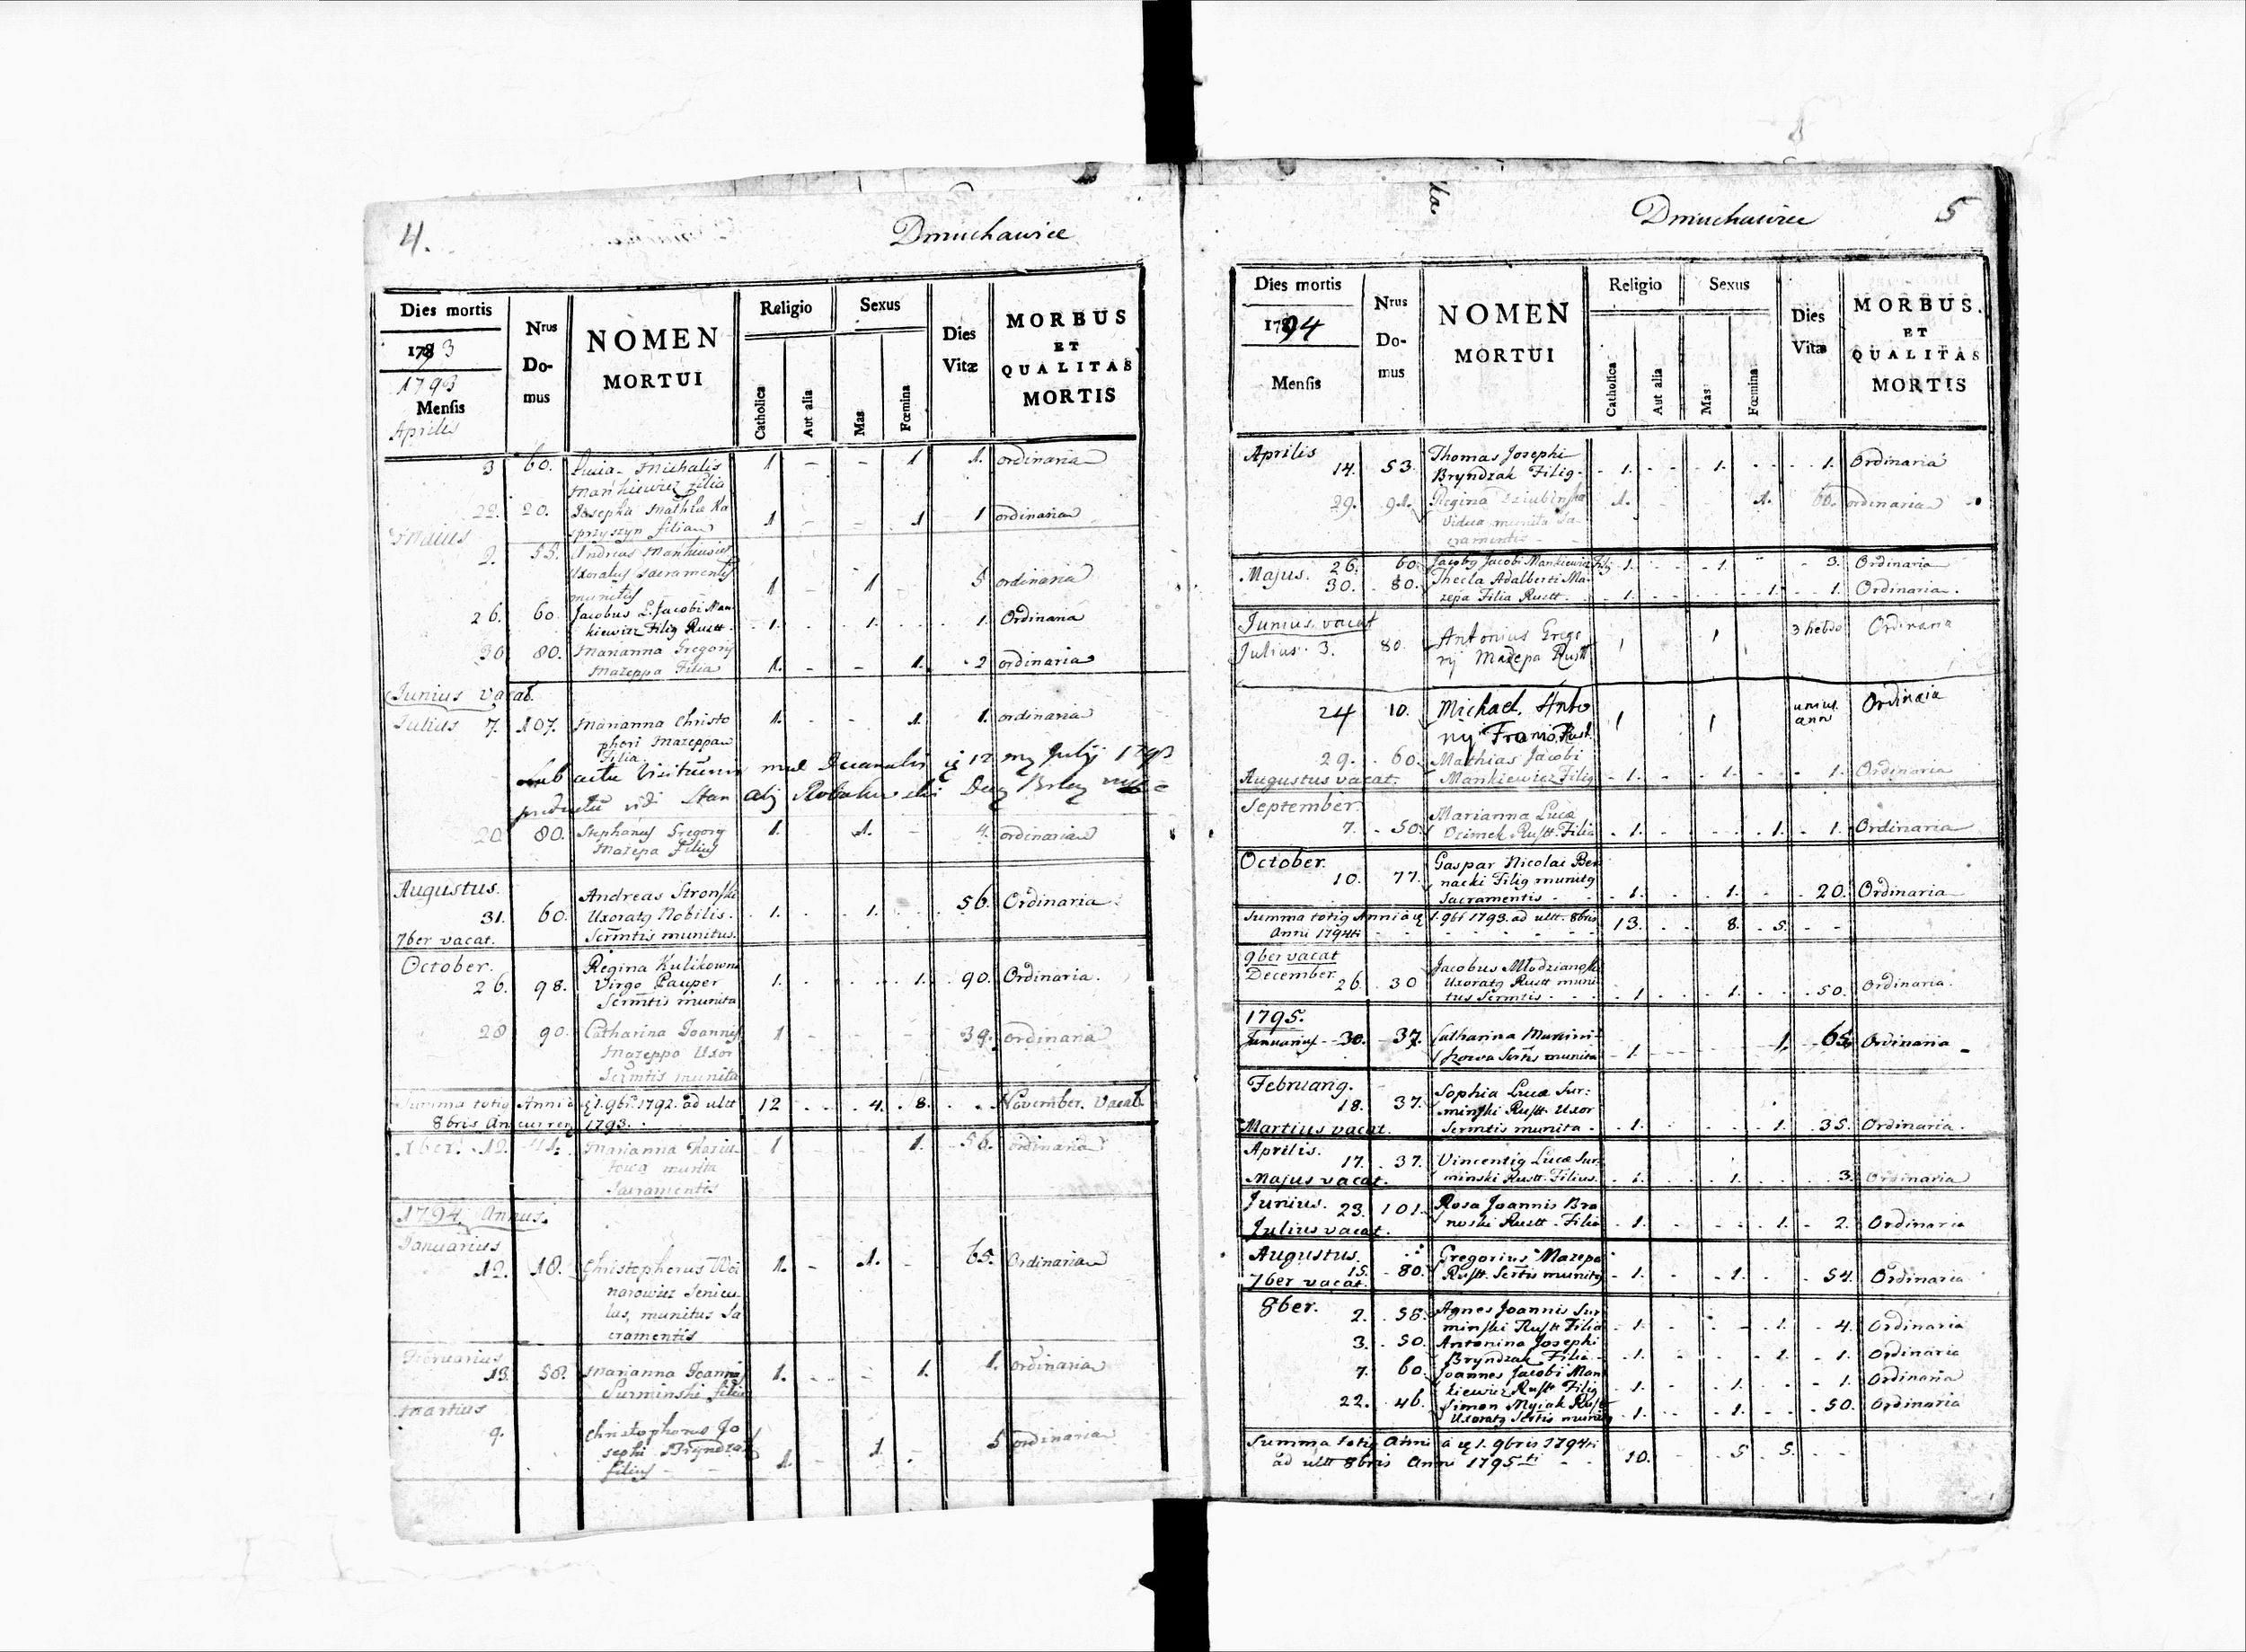 4.
Dmuchawice
Dies mortis
1793
1793
Mensis
Aprilis
Nrus
Do-
mus
NOMEN
MORTUI
Religio
Catholica
Aut alia
Sexus
Mas
Fœmina
Dies
Vitæ
MORBUS
ET
QUALITAS
MORTIS
3 60. Michalis 1 - - 1 1. ordinaria
Mańkiewicz filia
22. 20. Josepha Mathiæ Ka
sprzyszyn filia 1 - - 1 1 ordinaria
Maius
2. 55. Andreas Mankiewicz
Uxoratus sacramentis 1 1 5 ordinaria
munitus
26. 60. Jacobus Jacobi Man
kiewicz Filig Rustt. 1. 1. 1. Ordinaria
30 80. Marianna Gregorij
Mazeppa Filia 1. - - 1. 2 ordinaria
Junius vacat.
Julius 7. 107. Marianna Christo 1. - - 1. 1. ordinaria
phori Mazeppa
Filia
12 Julij 1793
20. 80. Stephanus Gregorij 1. 1. - 4. ordinaria
Mazepa Filius
Augustus.
31. 60. Andreas Stronski
Uxoratg Nobilis. 1. 1. 56. Ordinaria.
Scrmtis munitus.
7ber vacat.
October.
26. 98. Regina Kulikowna
Virgo Pauper 1. 1. 90. Ordinaria.
Scrmtis munita
28 90. Catharina Joannis 1 - - 39. ordinaria
Mazeppa Uxor
Scrmtis munita
Summa totig Anni à 1. 9bris 1792. ad ultt 12 4. 8. November. Vacat.
8bris An curren 1793.
Xber. 12. Marianna 1 1. 56. ordinaria
munita
Sacramentis
1794 Annus.
Januarius
12. 18. Christophorus Woi 1. - 1. - 65. Ordinaria
narowicz Senicu-
lus, munitus Sa
cramentis
Februarius
13. 58. Marianna Joannis 1. 1. 1. ordinaria
Surminski filia
Martius
9. Christophorus Jo
sephi Bryndzak 1. 1 - 5 ordinaria
filius
Dmuchawice
5
Dies mortis
1794
Mensis
Nrus
Do-
mus
NOMEN
MORTUI
Religio
Catholica
Aut alia
Sexus
Mas
Fœmina
Dies
Vitæ
MORBUS.
ET
QUALITAS
MORTIS
Aprilis
14. 53. Thomas Josephi
Bryndzak Filig 1. 1. 1. Ordinaria
29. 91. Regina Dziubinska 1. 1. 60. ordinaria
Vidua munita Sa-
cramentis
Majus. 26. 60. Jacobg Jacobi Mankiewicz Filg 1. 1. 3. Ordinaria
30. 80. Thecla Adalberti Ma-
zepa Filia Rustt. 1. 1. 1. Ordinaria.
Junius vacat
Julius 3. 80. Antonius Grego 1 1 3 hebdo Ordinaria
rij Mazepa Rustt
24 10. Michael Anto 1 1 unius Ordinaria
nij Franio Rust. ann
29. 60. Mathias Jacobi
Mankiewicz Filig 1. 1. 1. Ordinaria
Augustus vacat.
September.
7. 50. Marianna Lucæ
Ocimek Rustt. Filia 1. 1. 1. Ordinaria
October.
10. 77. Gaspar Nicolai Ber
nacki Filig munitg
Sacramentis 1. 1. 20. Ordinaria
Summa totig Anni à 1. 9bris 1793. ad ultt. 8bris
Anni 1794ti 13. 8. 5.
9ber vacat
December.
26. 30 Jacobus Młodzianoski
Uxoratg Rustt muni
tus Scrmtis 1. 1. 50. Ordinaria.
1795.
Januarius 30. 37. Catharina
Scrtis munita 1. 1. 65. Ordinaria
Februarig.
18. 37. Sophia Lucæ Sur-
minski Rustt. Uxor
Scrmtis munita 1. 1. 35. Ordinaria.
Martius vacat.
Aprilis.
17. 37. Vincentig Lucæ Sur-
minski Rustt. Filius. 1. 1. 3. Ordinaria
Majus vacat.
Junius. 23. 101. Rosa Joannis Bra
noski Rustt. Filia 1. 1. 2. Ordinaria
Julius vacat.
Augustus.
15. 80. Gregorius Mazepa
Rustt. Scrtis munitg 1. 1. 54. Ordinaria
7ber vacat.
8ber. 2. 58. Agnes Joannis Sur
minski Rustt Filia 1. 1. 4. Ordinaria
3. 50. Antonina Josephi
Bryndzak Filia 1. 1. 1. Ordinaria
7. 60. Joannes Jacobi Man
kiewicz Rustt Filig 1. 1. 1. Ordinaria
22. 46. Simon Myjak Rustt
Uxoratg Scrtis munitg 1. 1. 50. Ordinaria
Summa totig Anni à 1. 9bris 1794ti
ad ultt 8bris Anni 1795ti 10. 5 5.